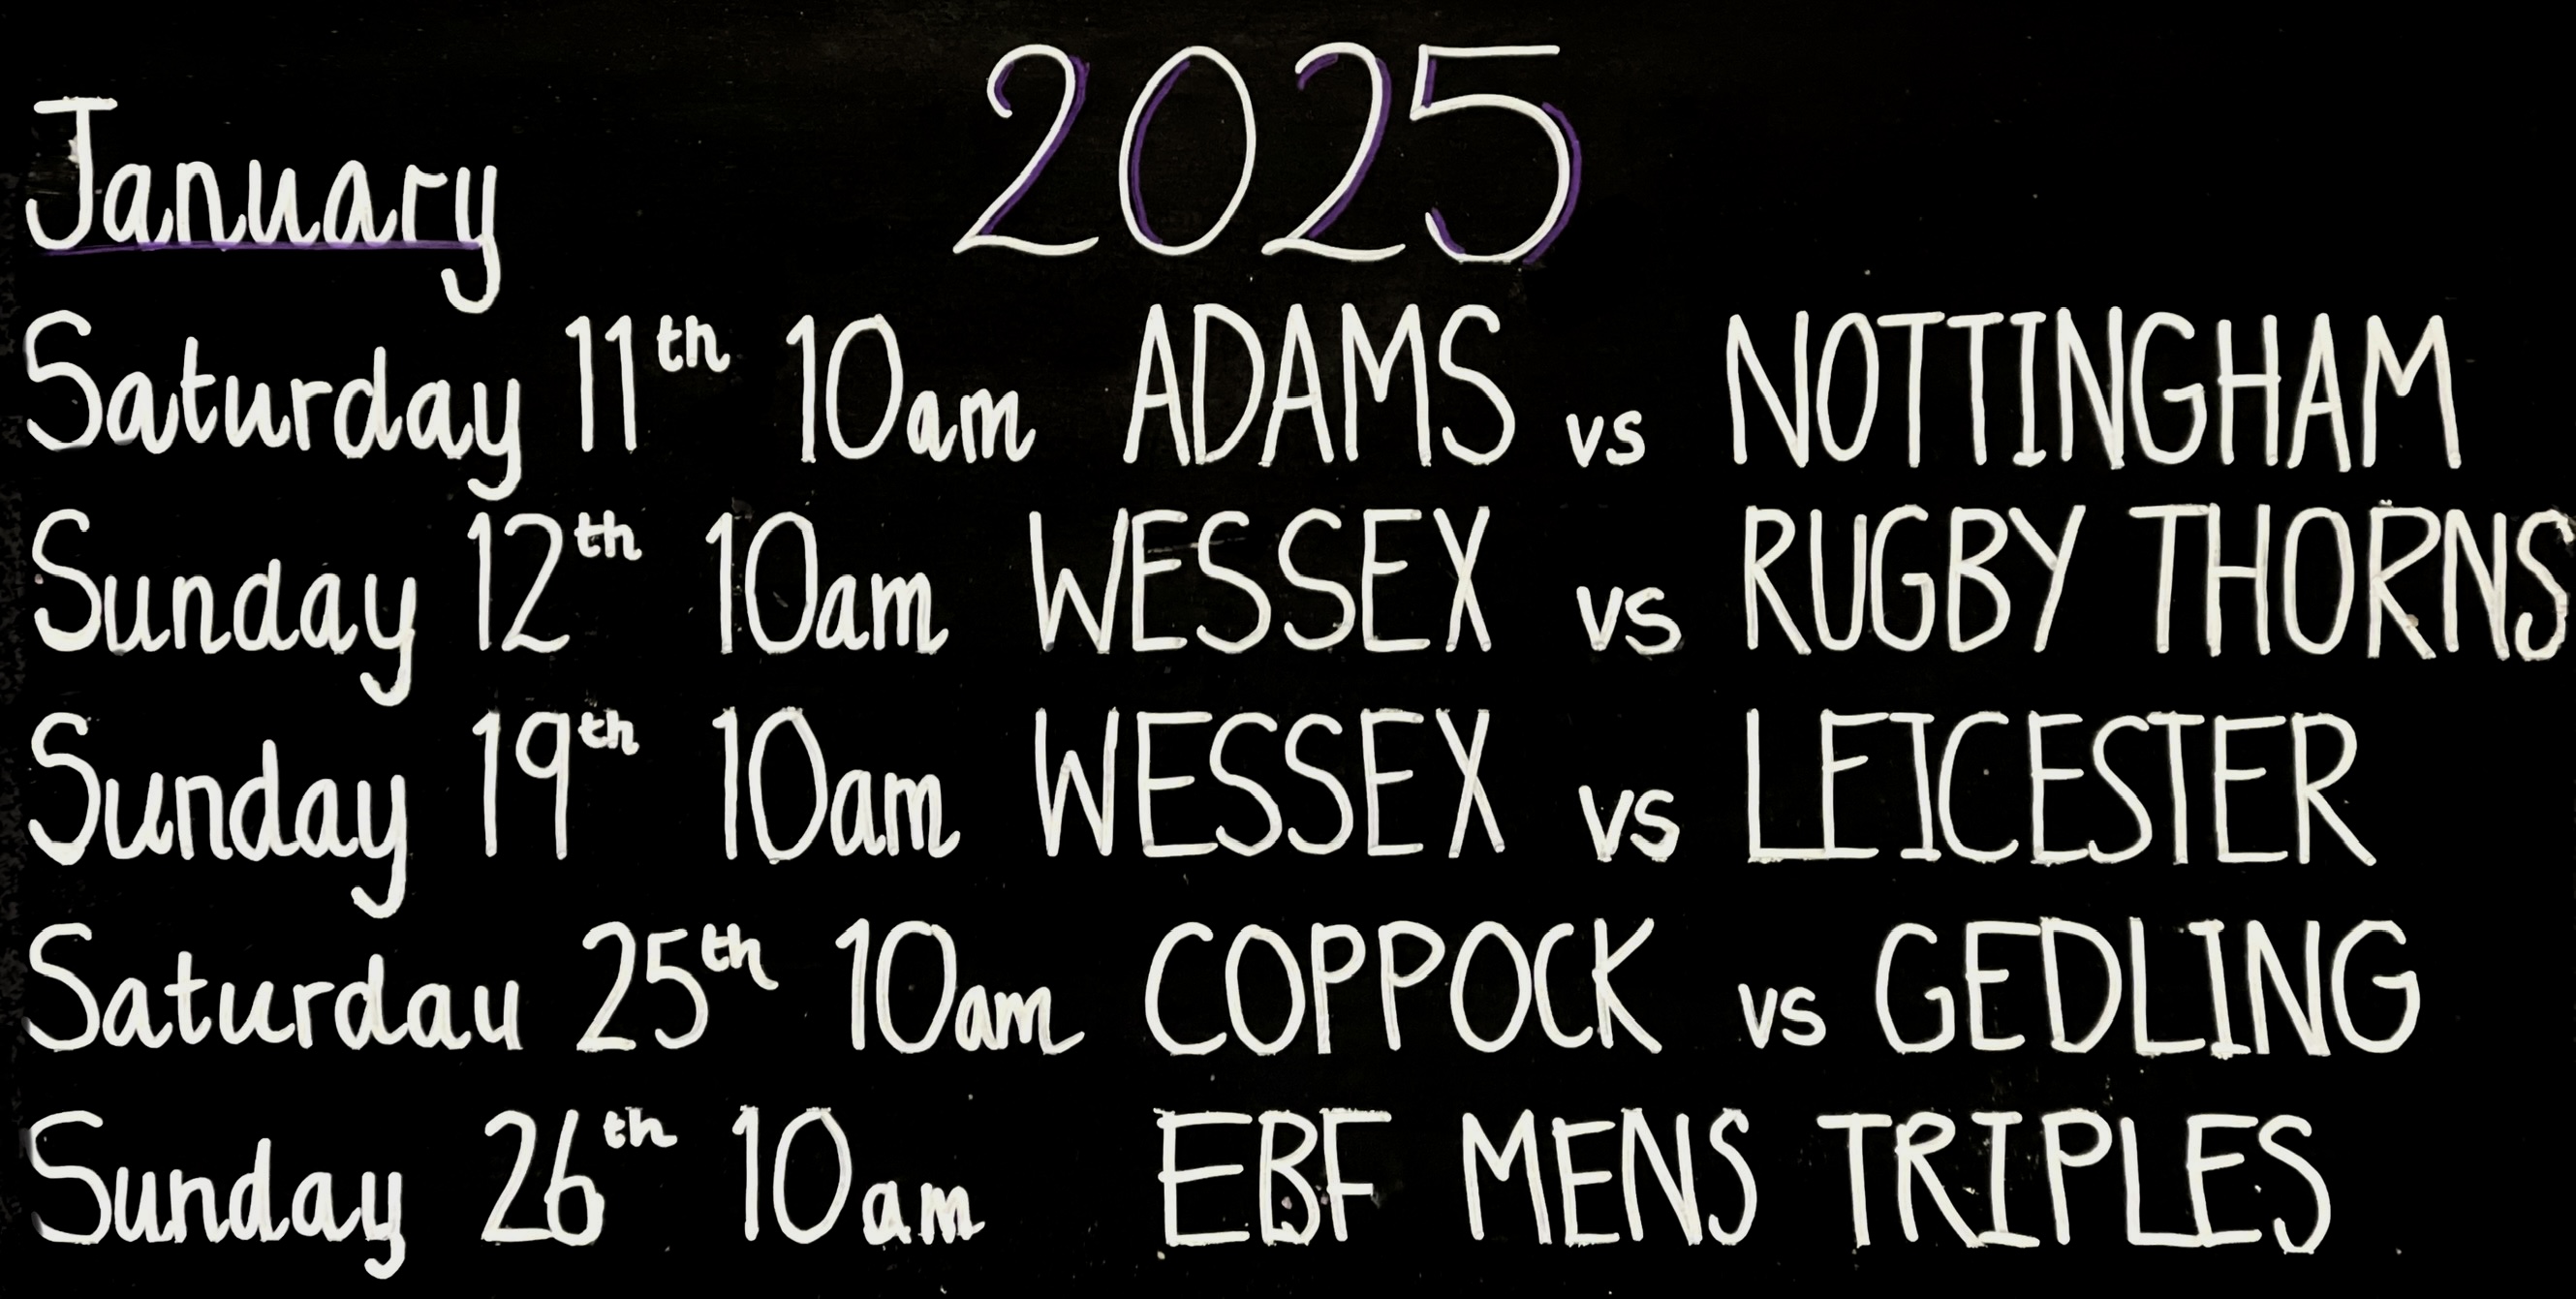 2025
January
Saturday 11th 10am ADAMS vs NOTTINGHAM
Sunday 12th 10am WESSEX vs RUGBY THORNS
Sunday 19th 10am WESSEX vs LEICESTER
Saturday 25th 10am COPPOCK vs GEDLING
Sunday 26th 10am EBF MENS TRIPLES